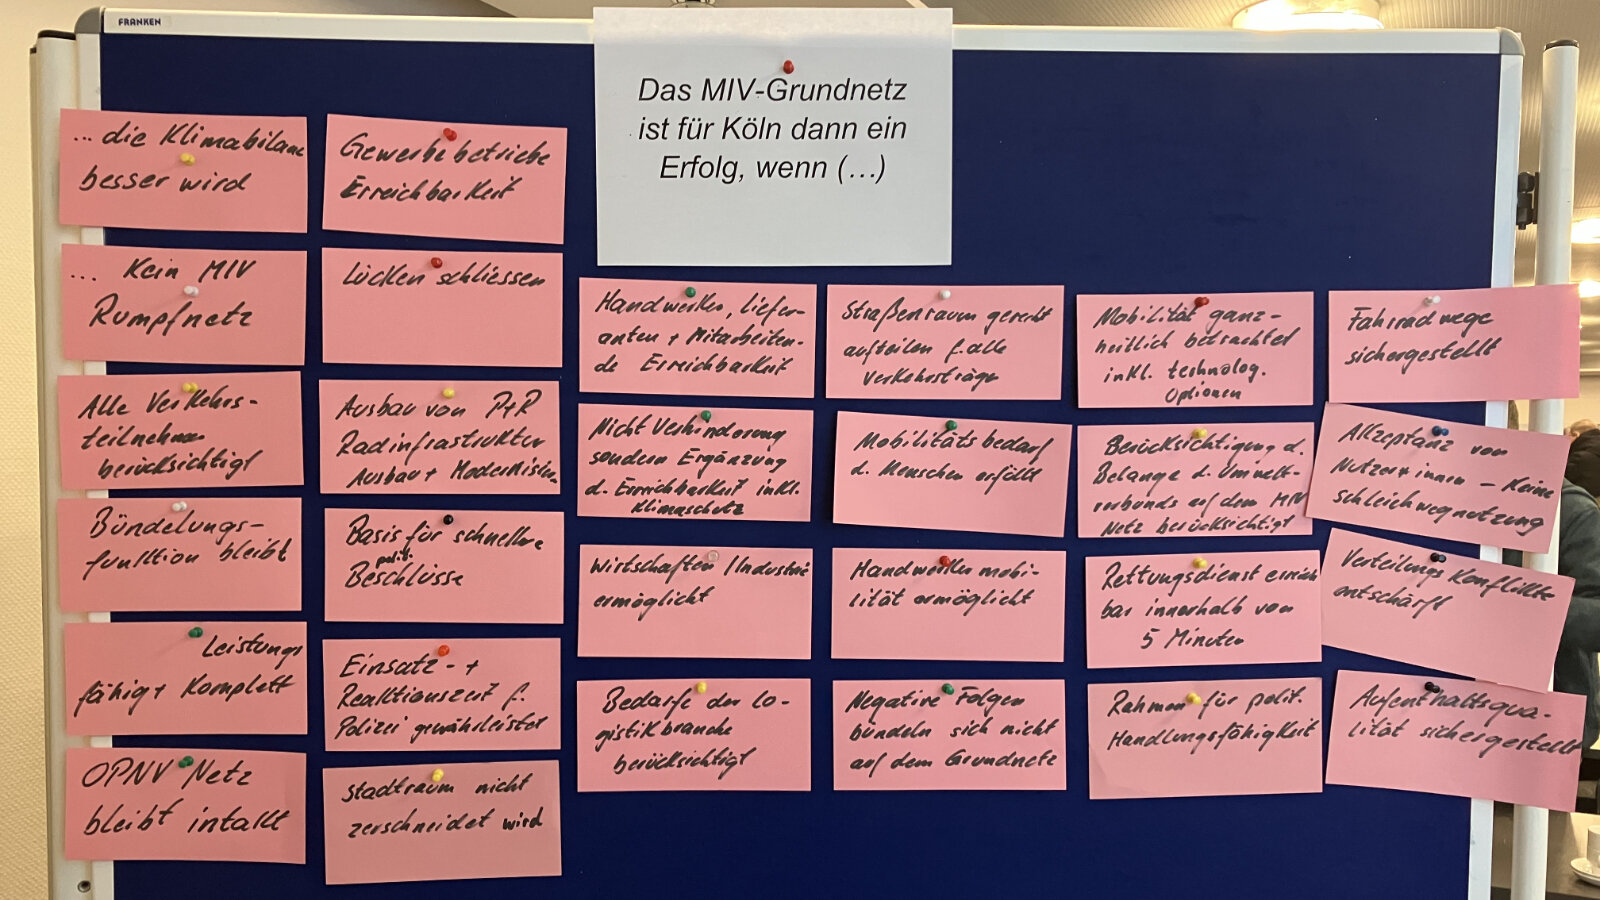 FRANKEN
Das MIV-Grundnetz
ist für Köln dann ein
Erfolg, wenn (...)
... die Klimabilanz
besser wird
... Kein MIV
Rumpfnetz
Alle Verkehrs-
teilnehmer
berücksichtigt
Bündelungs-
funktion bleibt
Leistungs
fähig + Komplett
ÖPNV Netz
bleibt intakt
Gewerbebetriebe
Erreichbarkeit
Lücken schliessen
Ausbau von P+R
Radinfrastruktur
Ausbau + Modernisier.
Basis für schnellere
polit.
Beschlüsse
Einsatz- +
Reaktionszeit f.
Polizei gewährleistet
Stadtraum nicht
zerschneidet wird
Handwerker, Liefer-
anten + Mitarbeiten-
de Erreichbarkeit
Nicht Verhinderung
sondern Ergänzung
d. Erreichbarkeit inkl.
Klimaschutz
Wirtschaften / Industrie
ermöglicht
Bedarfe der Lo-
gistikbranche
berücksichtigt
Straßenraum gerecht
aufteilen f. alle
Verkehrsträger
Mobilitätsbedarf
d. Menschen erfüllt
Handwerker mobi-
lität ermöglicht
Negative Folgen
bündeln sich nicht
auf dem Grundnetz
Mobilität ganz-
heitlich betrachtet
inkl. technolog.
Optionen
Berücksichtigung d.
Belange d. Umwelt-
verbunds auf dem MIV
Netz berücksichtigt
Rettungsdienst erreich
bar innerhalb von
5 Minuten
Rahmen für polit.
Handlungsfähigkeit
Fahrradwege
sichergestellt
Akzeptanz von
Nutzer*innen - Keine
Schleichwegnutzung
Verteilungskonflikte
entschärft
Aufenthaltsqua-
lität sichergestellt